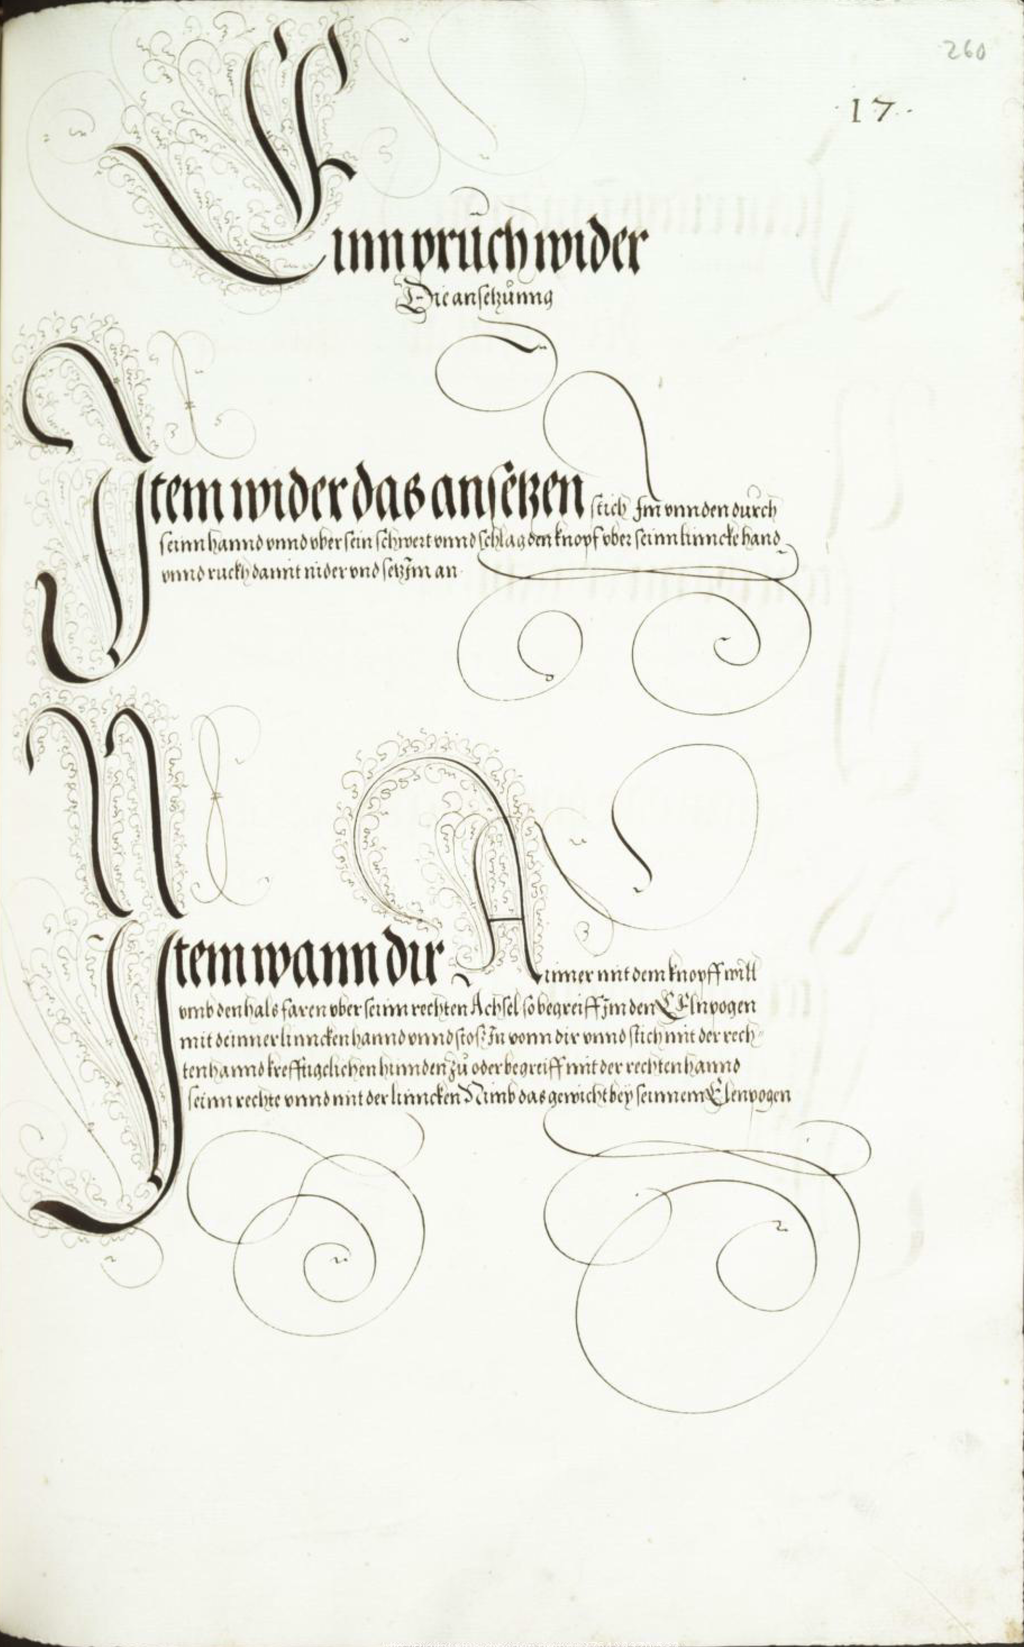 260
·17·
Einn pruch wider
Die ansetzunng
Item wider das ansetzen stich Im vnnden durch
seinn hannd vnnd vber sein schwert vnnd schlag den knopf vber seinn linncke hand
vnnd ruckh damit nider vnd setz Im an
Item wann dir Ainner mit dem knopff will
vmb den hals faren vber seinn rechten Achsel so begreiff Im den Elnpogen
mit deinner linncken hannd vnnd stos In vonn dir vnnd stich mit der rech-
ten hannd kreffticlichen hinnden zů oder begreiff mit der rechten hannd
seinn rechte vnnd mit der linncken Nimb das gewicht bey seinnem Elenpogen